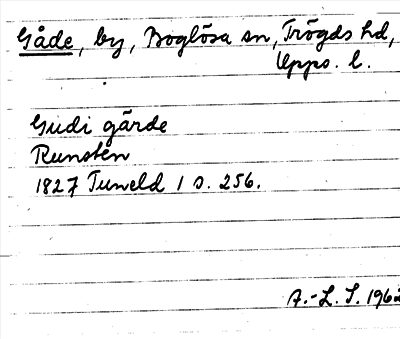 Gåde, by, Boglösa sn, Trögds hd,
Upps. l.
Gudi gärde
Runsten
1827 Tuneld 1 s. 256.
A.-L. S. 1962